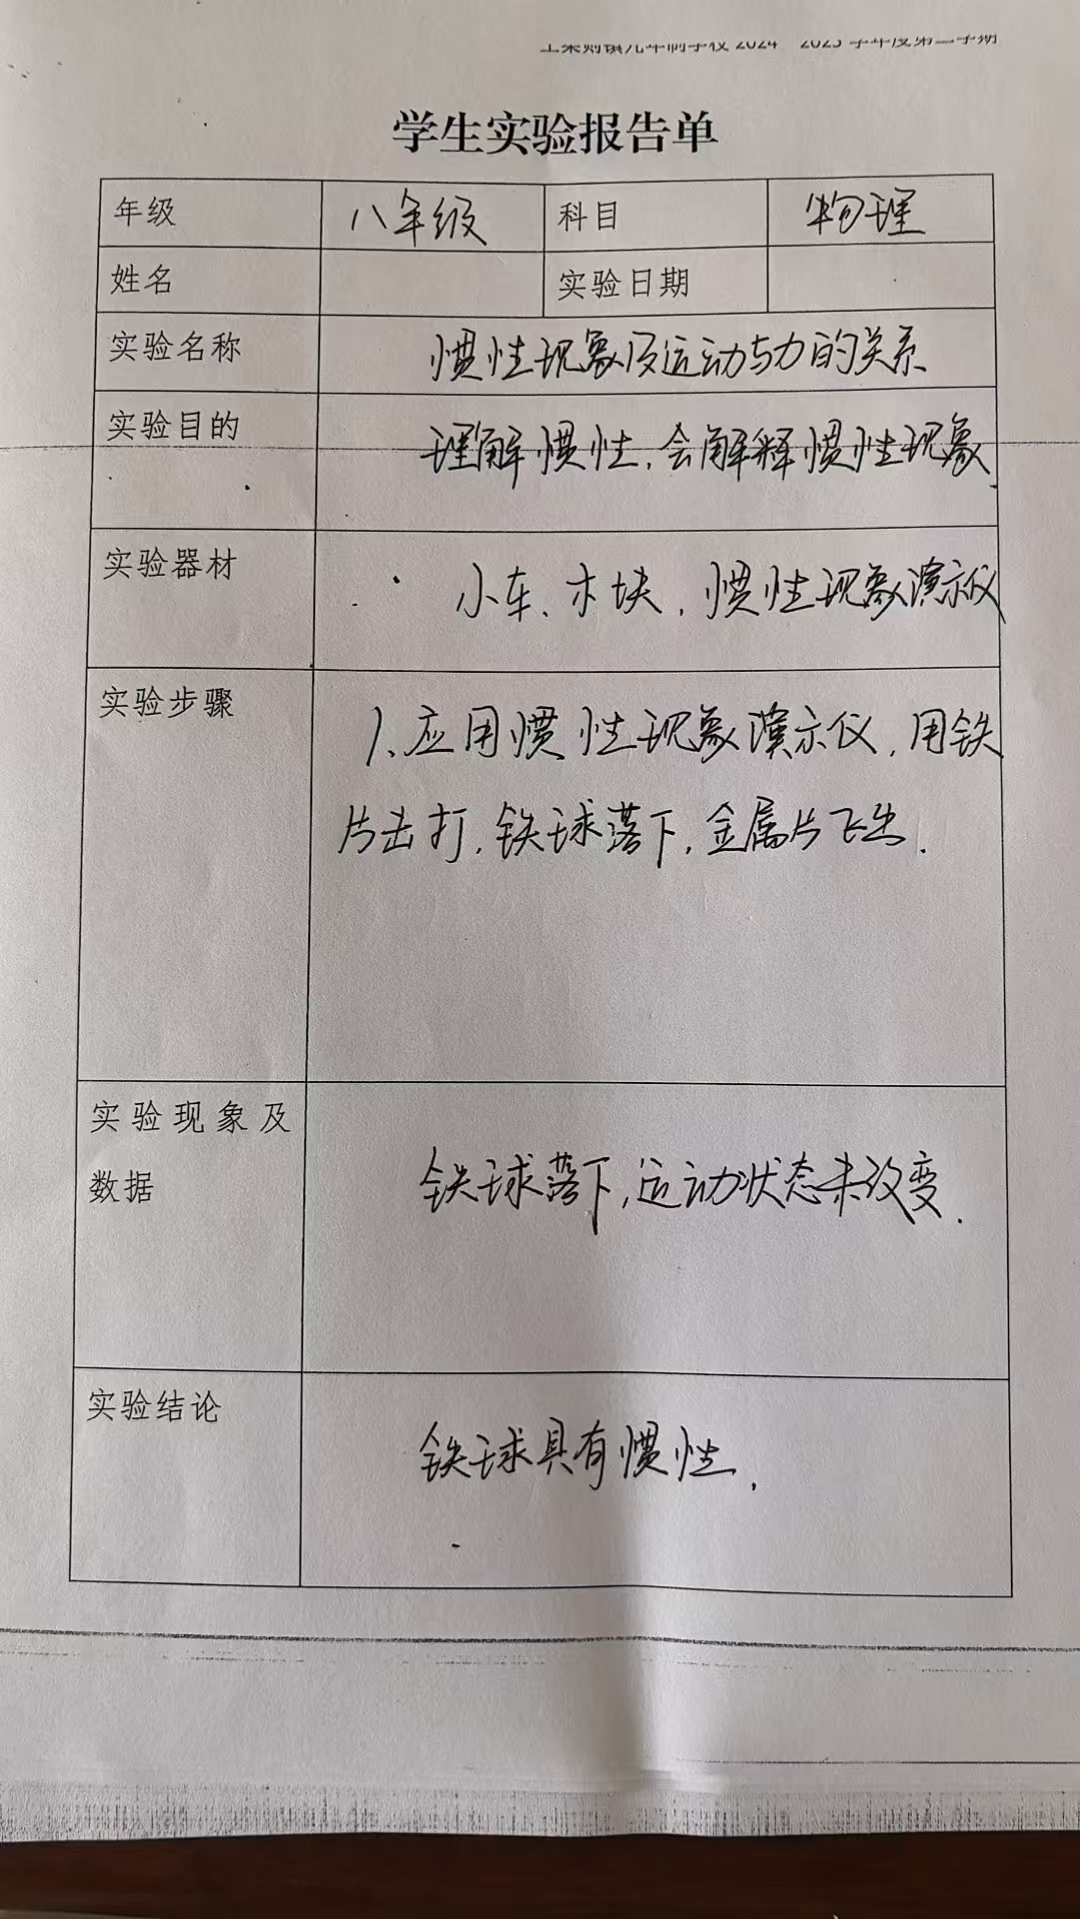 学生实验报告单
年级 八年级 科目 物理
姓名 实验日期
实验名称 惯性现象及运动与力的关系
实验目的 理解惯性,会解释惯性现象.
实验器材 小车、木块,惯性现象演示仪
实验步骤 1、应用惯性现象演示仪,用铁
片击打,铁球落下,金属片飞出.
实验现象及
数据 铁球落下,运动状态未改变.
实验结论 铁球具有惯性.